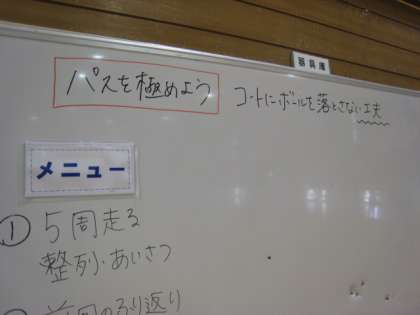 器具庫
パスを極めよう
コートにボールを落とさない工夫
メニュー
① 5周走る
整列・あいさつ
前回のふり返り